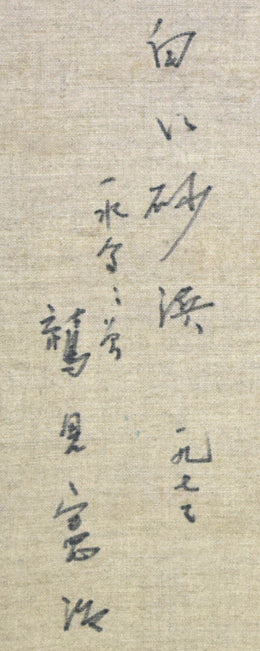 白い砂浜 一九七三
一水会々員
鷲見憲治